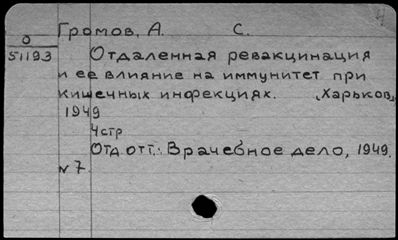 Громов, А. С.
О
51193
Отдаленная ревакцинация
и ее влияние на иммунитет при
кишечных инфекциях. Харьков,
1949
4стр
Отд. отт.: Врачебное дело, 1949.
№7.